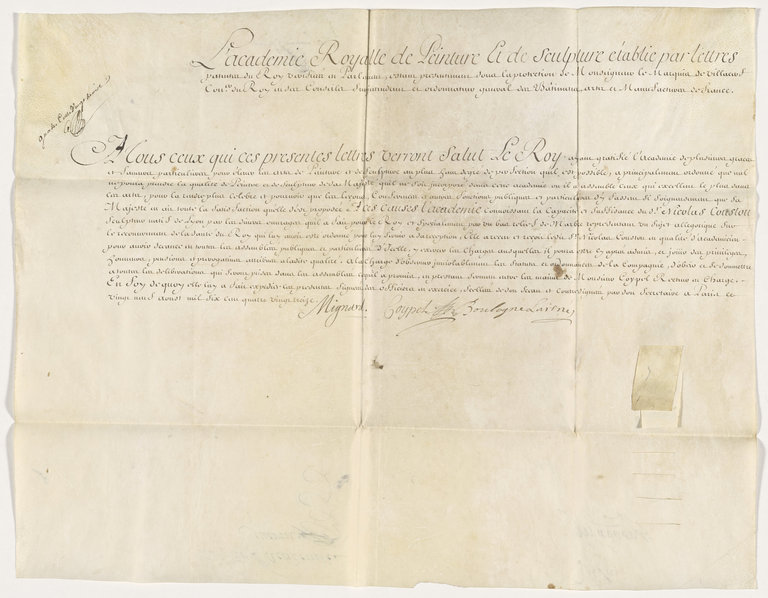 L'academie Royalle de Peinture Et de Sculpture établie par lettres
patentes du Roy verifiées en Parlement, estant presentement sous la protection de Monseigneur le Marquis de Villacerf
Con.er du Roy en ses Conseils Surintendant et ordonnateur general des Bastimens, arts et Manufactures de France.
A Tous ceux qui ces presentes lettres verront Salut Le Roy ayant gratifié l'Academie de plusieurs graces
et faveurs particulieres, pour élever les arts de Peinture et de Sculpture au plus haut degré de perfection qu'il est possible, a principalement ordonné que nul
ne pourra prendre la qualité de Peintre et de Sculpteur de Sa Majesté qu'il ne soit incorporé dans cette academie où il a assemblé ceux qui excellent le plus dans
les arts, pour la rendre plus celebre et pourvoir que les leçons, Conferences et autres fonctions publiques et particulieres s'y fassent Si soigneusement que Sa
Majesté en ait toute la Satisfaction qu'elle s'est proposée A ces causes l'academie connoissant la Capacité et Suffisance du S.r Nicolas Coustou
Sculpteur natif de Lion par les divers ouvrages qu'il a fait pour le Roy et Specialement par un bas relief de Marbre representant un Sujet allegorique Sur
le recouvrement de la Santé du Roy qui luy avoit esté ordonné pour luy servir à sa reception, Elle a receu et reçoit ledit S.r Nicolas Coustou en qualité d'academicien
pour avoir Seance en toutes les assemblées publiques et particulieres d'Icelle, exercer les Charges ausquelles il pourra estre cy apres admis, et joüir des privileges,
honneurs, pensions et prerogatives attribuées à ladite qualité. A la Charge d'observer inviolablement les Statuts et ordonnances de la Compagnie, d'obeïr et Se soumettre
a toutes les deliberations qui Seront prises dans les assemblées, ce qu'il a promis, en prestant serment entre les mains de Monsieur Coypel Recteur en Charge.
En Foy de quoy elle luy a fait expedier les presentes Signées des officiers en exercice, Scellées de son Sceau et Contresignées par son Secretaire a Paris le
vingt neuf Aoust mil Six cens quatre vingt treize.
Mignard. Coypel Boulogne Laisné